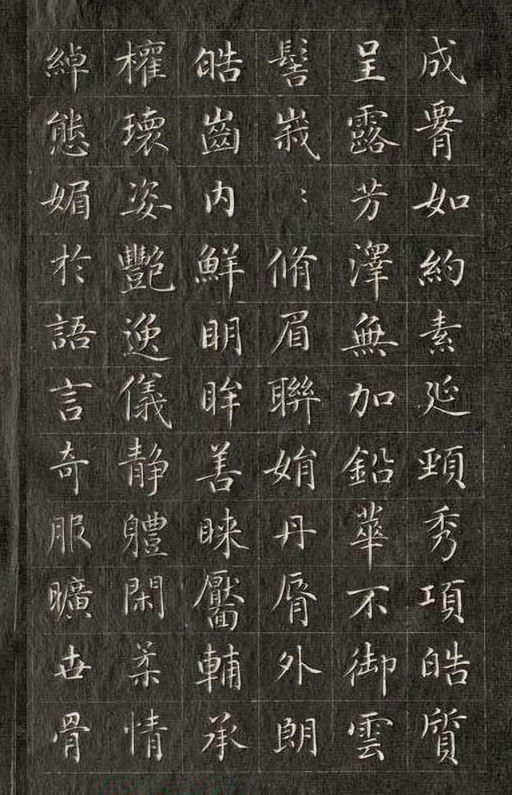 成腰如約素延頸秀項皓質
呈露芳澤無加鉛華不御雲
髻峩：脩眉聯娟丹脣外朗
皓齒内鮮明眸善睞靨輔承
權瓌姿豔逸儀静軆閑柔情
綽態媚於語言奇服曠世骨